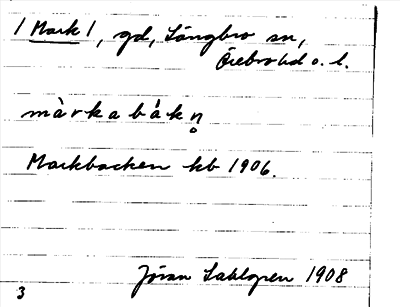 / Mark /, gd, Längbro sn,
Örebro hd o. l.
màrkabák n̥
Markbacken kb 1906.
Jöran Sahlgren 1908
3